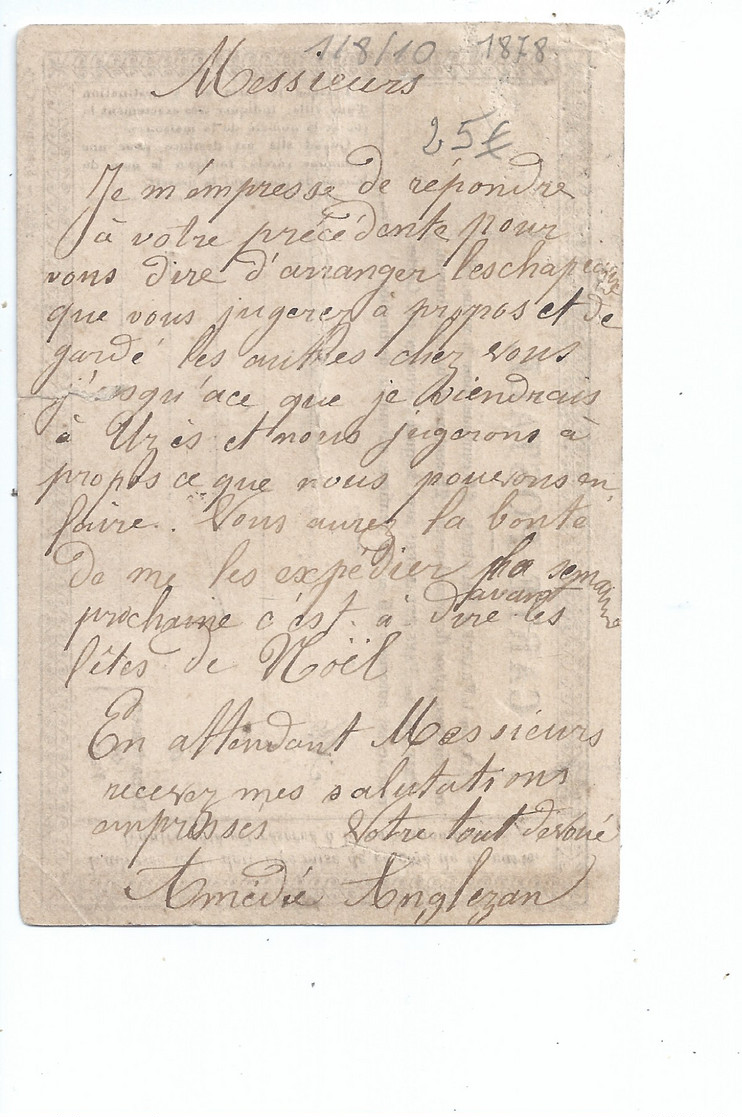 1/8/10 1878
Messieurs
25€
Je m'émpresse de répondre
à votre précédente pour
vous dire d'arranger leschapeaux
que vous jugerez à propos et de
gardé les autres chez vous
j'usqu'ace que je viendrais
à Uzès et nous jugerons à
propos ce que nous pouvons en
faire. Vous aurez la bonté
de me les expédier la semaine
prochaine c'est à dire avant les
fêtes de Noël
En attendant Messieurs
recevez mes salutations
empressés Votre tout dévoué
Amédée Anglezan